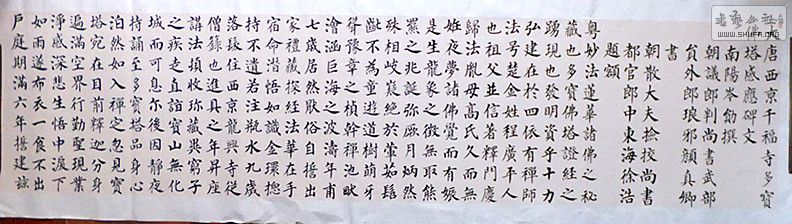 唐西京千福寺多寶
塔感應碑文
南陽岑勛撰
朝議郎判尚書武部
員外郎琅邪顏真卿
書
朝散大夫撿校尚書
都官郎中東海徐浩
題額
粵妙法蓮華諸佛之秘
藏也多寶佛塔證經之
踴現也發明資乎十力
弘建在於四依有禪師
法號楚金姓程廣平人
也祖父並信著釋門慶
歸法胤母高氏久而無
姙夜夢諸佛覺而有娠
是生龍象之徵無取熊
羆之兆誕彌厥月炳然
殊相岐嶷絕於葷茹髫
齓不為童遊道樹萌牙
聳豫章之楨幹禪池畎
澮涵巨海之波濤年甫
七歲居然猒俗自誓出
家禮藏探經法華在手
宿命潛悟如識金環總
持不遺若注瓶水九歲
落髮住西京龍興寺從
僧籙也進具之年昇座
講法頓收珍藏異窮子
之疾走直詣寶山無化
城而可息爾後因靜夜
持誦至多寶塔品身心
泊然如入禪定忽見寶
塔宛在目前釋迦分身
遍滿空界行勤聖現業
淨感深悲生悟中淚下
如雨遂布衣一食不出
戶庭期滿六年誓建茲